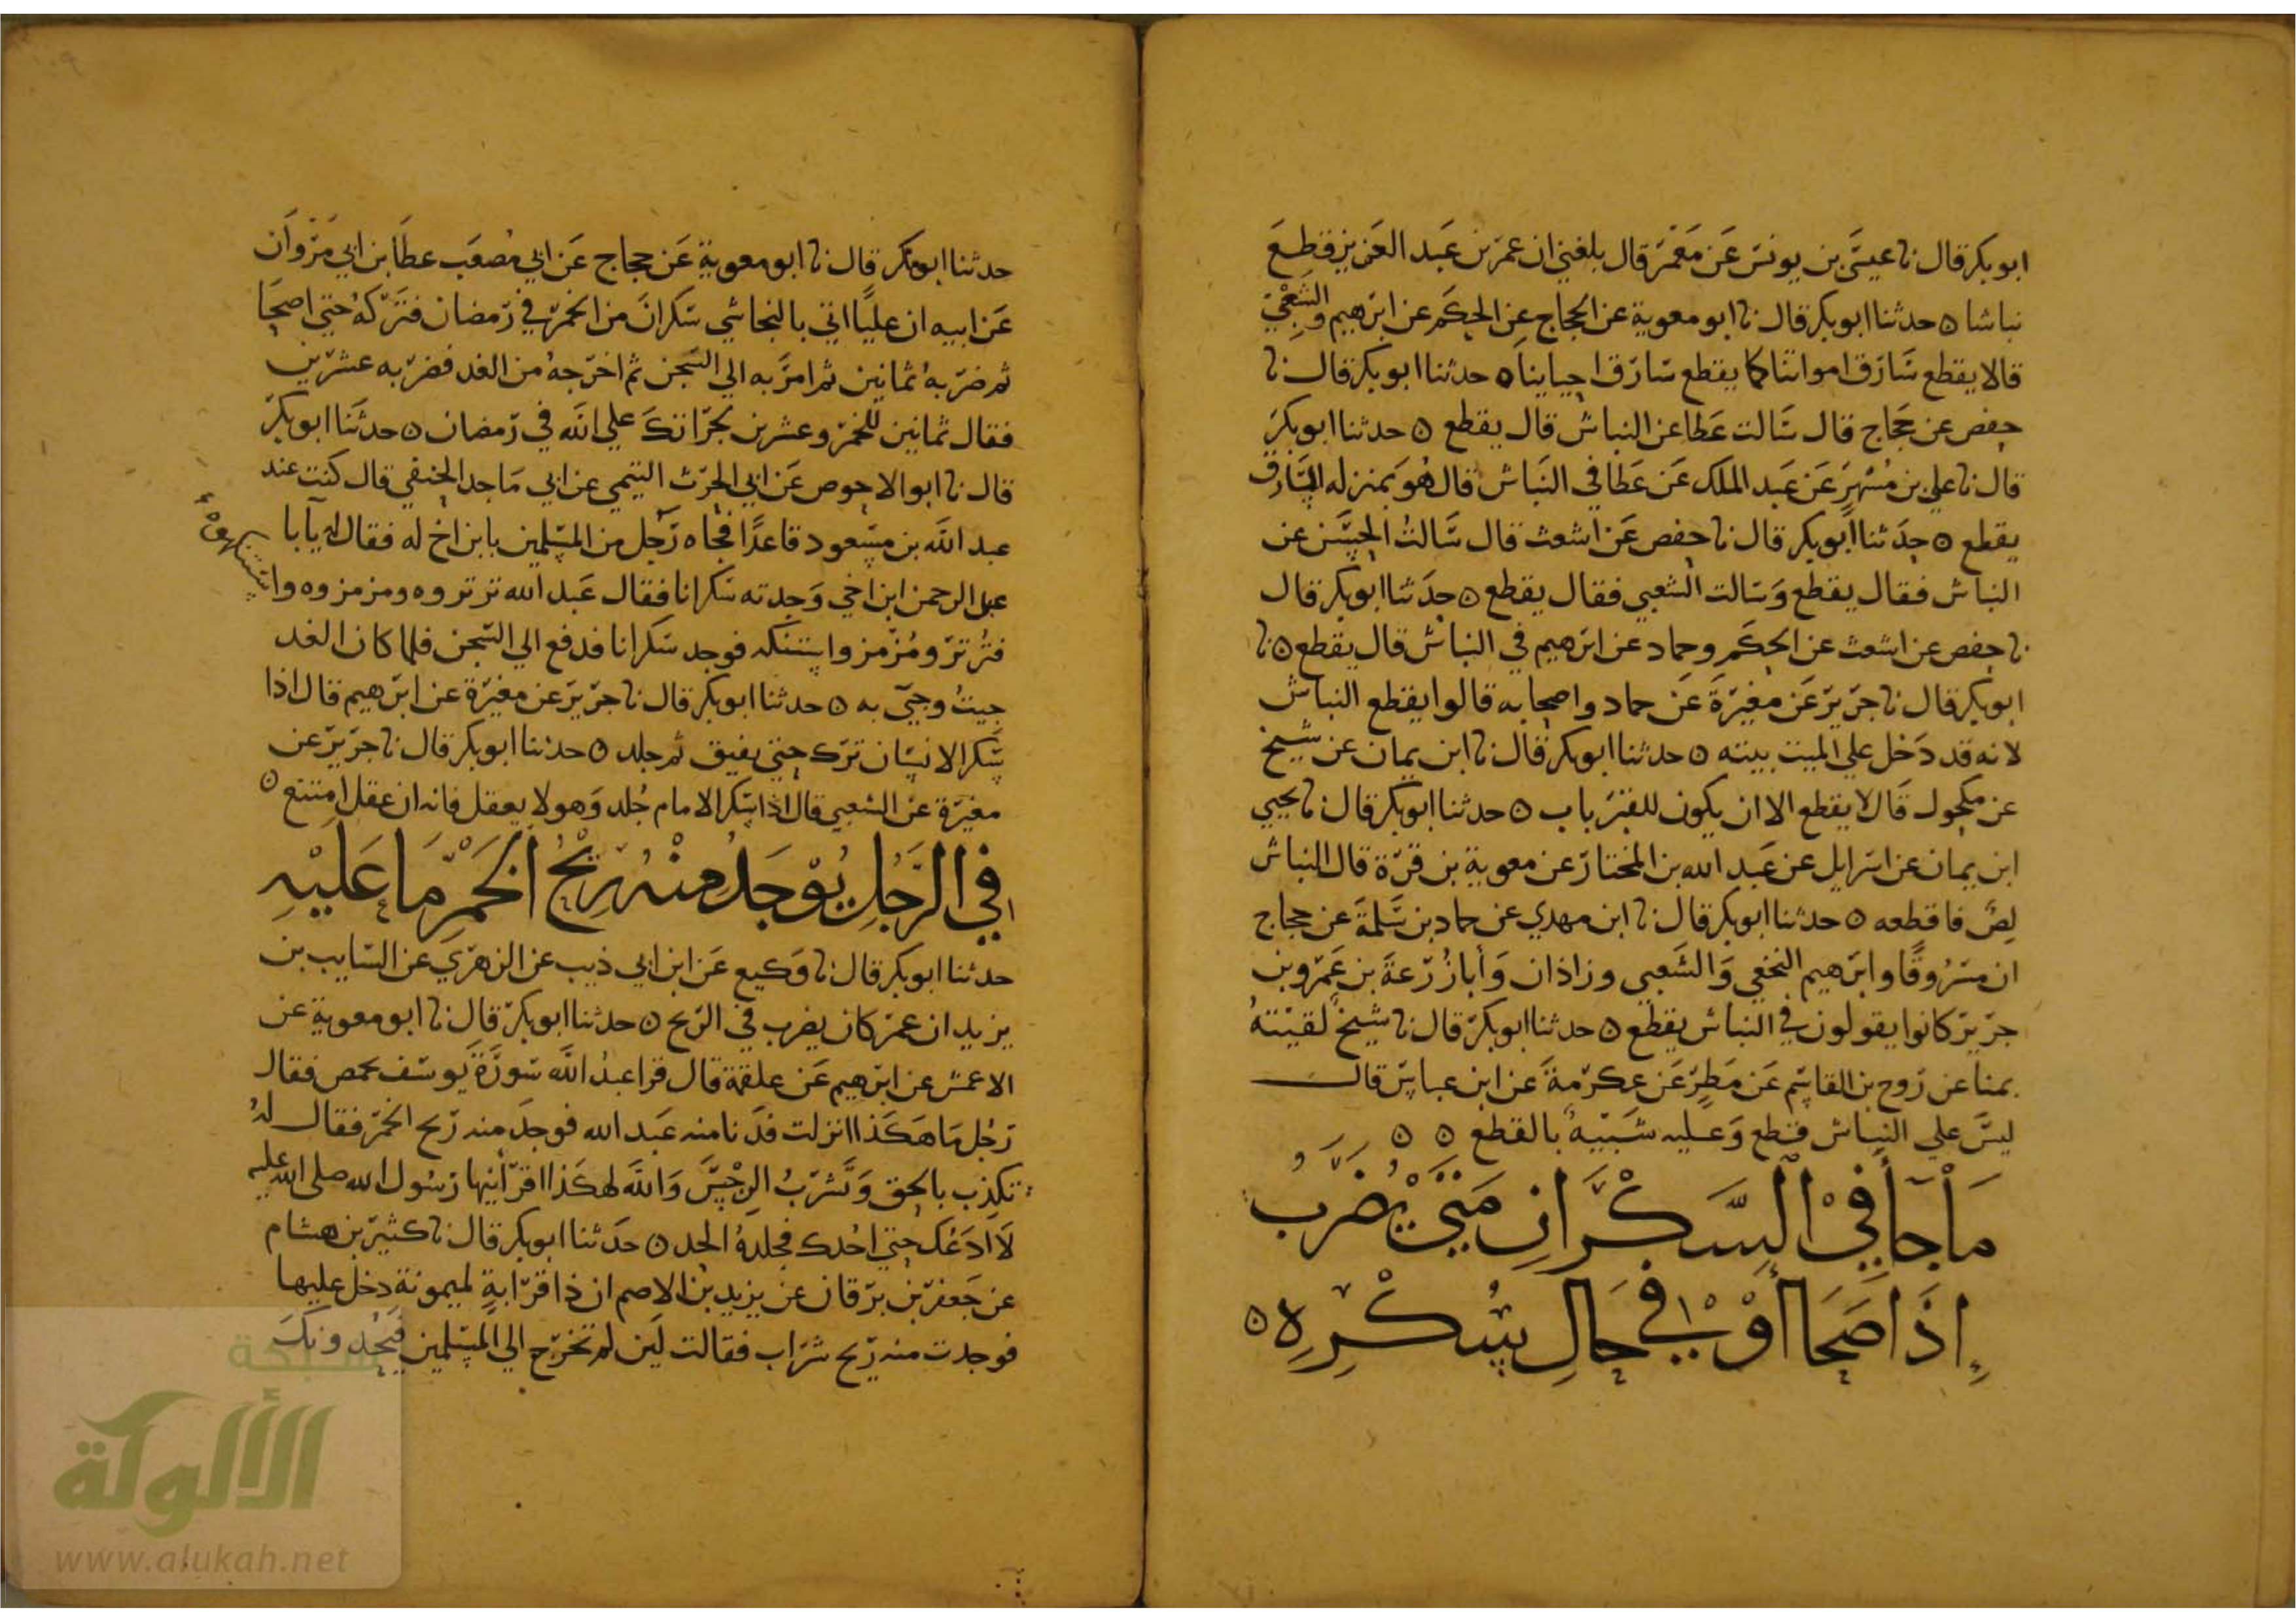 ابو بكر قال نا عيسى بن يونس عن معمر قال بلغني ان عمر بن عبد العزيز قطع
نباشا ه حدثنا ابو بكر قال نا ابو معوية عن الحجاج عن الحكم عن ابرهيم والشعبي
قالا يقطع سارق امواتنا كما يقطع سارق احياينا ه حدثنا ابو بكر قال نا
حفص عن حجاج قال سالت عطا عن النباش قال يقطع ه حدثنا ابو بكر
قال نا علي بن مسهر عن عبد الملك عن عطا في النباش قال هو بمنزله السارق
يقطع ه حدثنا ابو بكر قال نا حفص عن اشعث قال سالت الحسن عن
النباش فقال يقطع وسالت الشعبي فقال يقطع ه حدثنا ابو بكر قال
نا حفص عن اشعث عن الحكم وحماد عن ابرهيم في النباش قال يقطع ه نا
ابو بكر قال نا جرير عن مغيرة عن حماد واصحابه قالوا يقطع النباش
لانه قد دخل على الميت بيته ه حدثنا ابو بكر قال نا ابن يمان عن شيخ
عن مكحول قال لا يقطع الا ان يكون للقبر باب ه حدثنا ابو بكر قال نا يحيي
ابن يمان عن اسرايل عن عبد الله بن المختار عن معوية بن قرة قال النباش
لص فاقطعه ه حدثنا ابو بكر قال نا ابن مهدي عن حماد بن سلمة عن حجاج
ان مسروقا وابرهيم النخعي والشعبي وزاذان وأبا زرعة بن عمرو بن
جرير كانوا يقولون في النباش يقطع ه حدثنا ابو بكر قال نا شيخ لقيته
بمنا عن روح بن القاسم عن مطر عن عكرمة عن ابن عباس قال
ليس علي النباش قطع وعليه شبيه بالقطع ه ه
ما جا في السكران متى يضرب
إذا صحا أو في حال سكره ه
حدثنا ابو بكر قال نا ابو معوية عن حجاج عن ابي مصعب عطا بن ابي مروان
عن ابيه ان عليا اتي بالنجاشي سكران من الخمر في رمضان فتركه حتي اصحا
ثم ضربه ثمانين ثم امر به الي السجن ثم اخرجه من الغد فضربه عشرين
فقال ثمانين للخمر وعشرين بجراتك علي الله في رمضان ه حدثنا ابو بكر
قال نا ابو الاحوص عن ابي الحرث التيمي عن ابي ماجد الحنفي قال كنت عند
عبد الله بن مسعود قاعدا فجاه رجل من المسلمين بابن اخ له فقال له يابا
عبد الرحمن ابن اخي وجدته سكرانا فقال عبد الله ترتروه ومزمزوه واستنكهوه
فترتر ومزمز واستنكه فوجد سكرانا فدفع الي السجن فلما كان الغد
جيت وجيى به ه حدثنا ابو بكر قال نا جرير عن مغيرة عن ابرهيم قال اذا
سكر الانسان ترك حتي يفيق ثم جلد ه حدثنا ابو بكر قال نا جرير عن
مغيرة عن الشعبي قال اذا سكر الامام جلد وهو لا يعقل فانه ان عقل امتنع ه
في الرجل يوجد منه ريح الخمر ما عليه
حدثنا ابو بكر قال نا وكيع عن ابن ابي ذيب عن الزهري عن السايب بن
يزيد ان عمر كان يضرب في الريح ه حدثنا ابو بكر قال نا ابو معوية عن
الاعمش عن ابرهيم عن علقمة قال قرا عبد الله سورة يوسف بحمص فقال
رجل ما هكذا انزلت فدنا منه عبد الله فوجد منه ريح الخمر فقال له
تكذب بالحق وتشرب الرجس والله لهكذا اقرأنيها رسول الله صلى الله عليه
لا ادعك حتي احدك فجلده الحد ه حدثنا ابو بكر قال نا كثير بن هشام
عن جعفر بن برقان عن يزيد بن الاصم ان ذا قرابة لميمونة دخل عليها
فوجدت منه ريح شراب فقالت لين لم تخرج الي المسلمين فيحدونك
شبكة
الألوكة
www.alukah.net